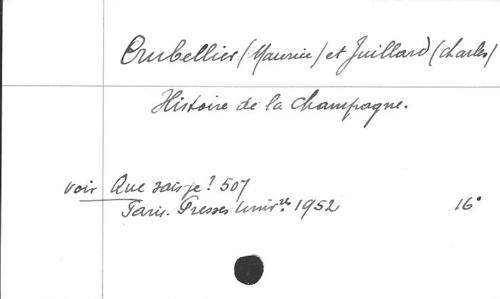 Crubellier (Maurice) et Juillard (Charles)
Histoire de la Champagne.
voir Que sais-je? 507
Paris. Presses Univ.res 1952 16°